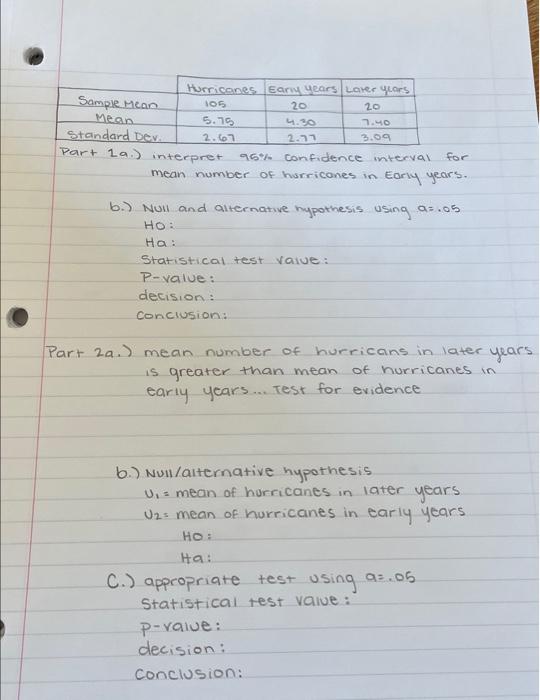 Hurricanes Early years Later years
Sample Mean 105 20 20
Mean 5.75 4.30 7.40
Standard Dev. 2.67 2.77 3.09
Part 1a.) interpret 95% confidence interval for
mean number of hurricanes in Early years.
b.) Null and alternative hypothesis using a=.05
Ho:
Ha:
Statistical test value:
P-value:
decision:
conclusion:
Part 2a.) mean number of hurricans in later years
is greater than mean of hurricanes in
early years... Test for evidence
b.) Null/alternative hypothesis
U₁= mean of hurricanes in later years
U2= mean of hurricanes in early years
Ho:
Ha:
C.) appropriate test using a=.05
Statistical test value:
p-value:
decision:
conclusion: